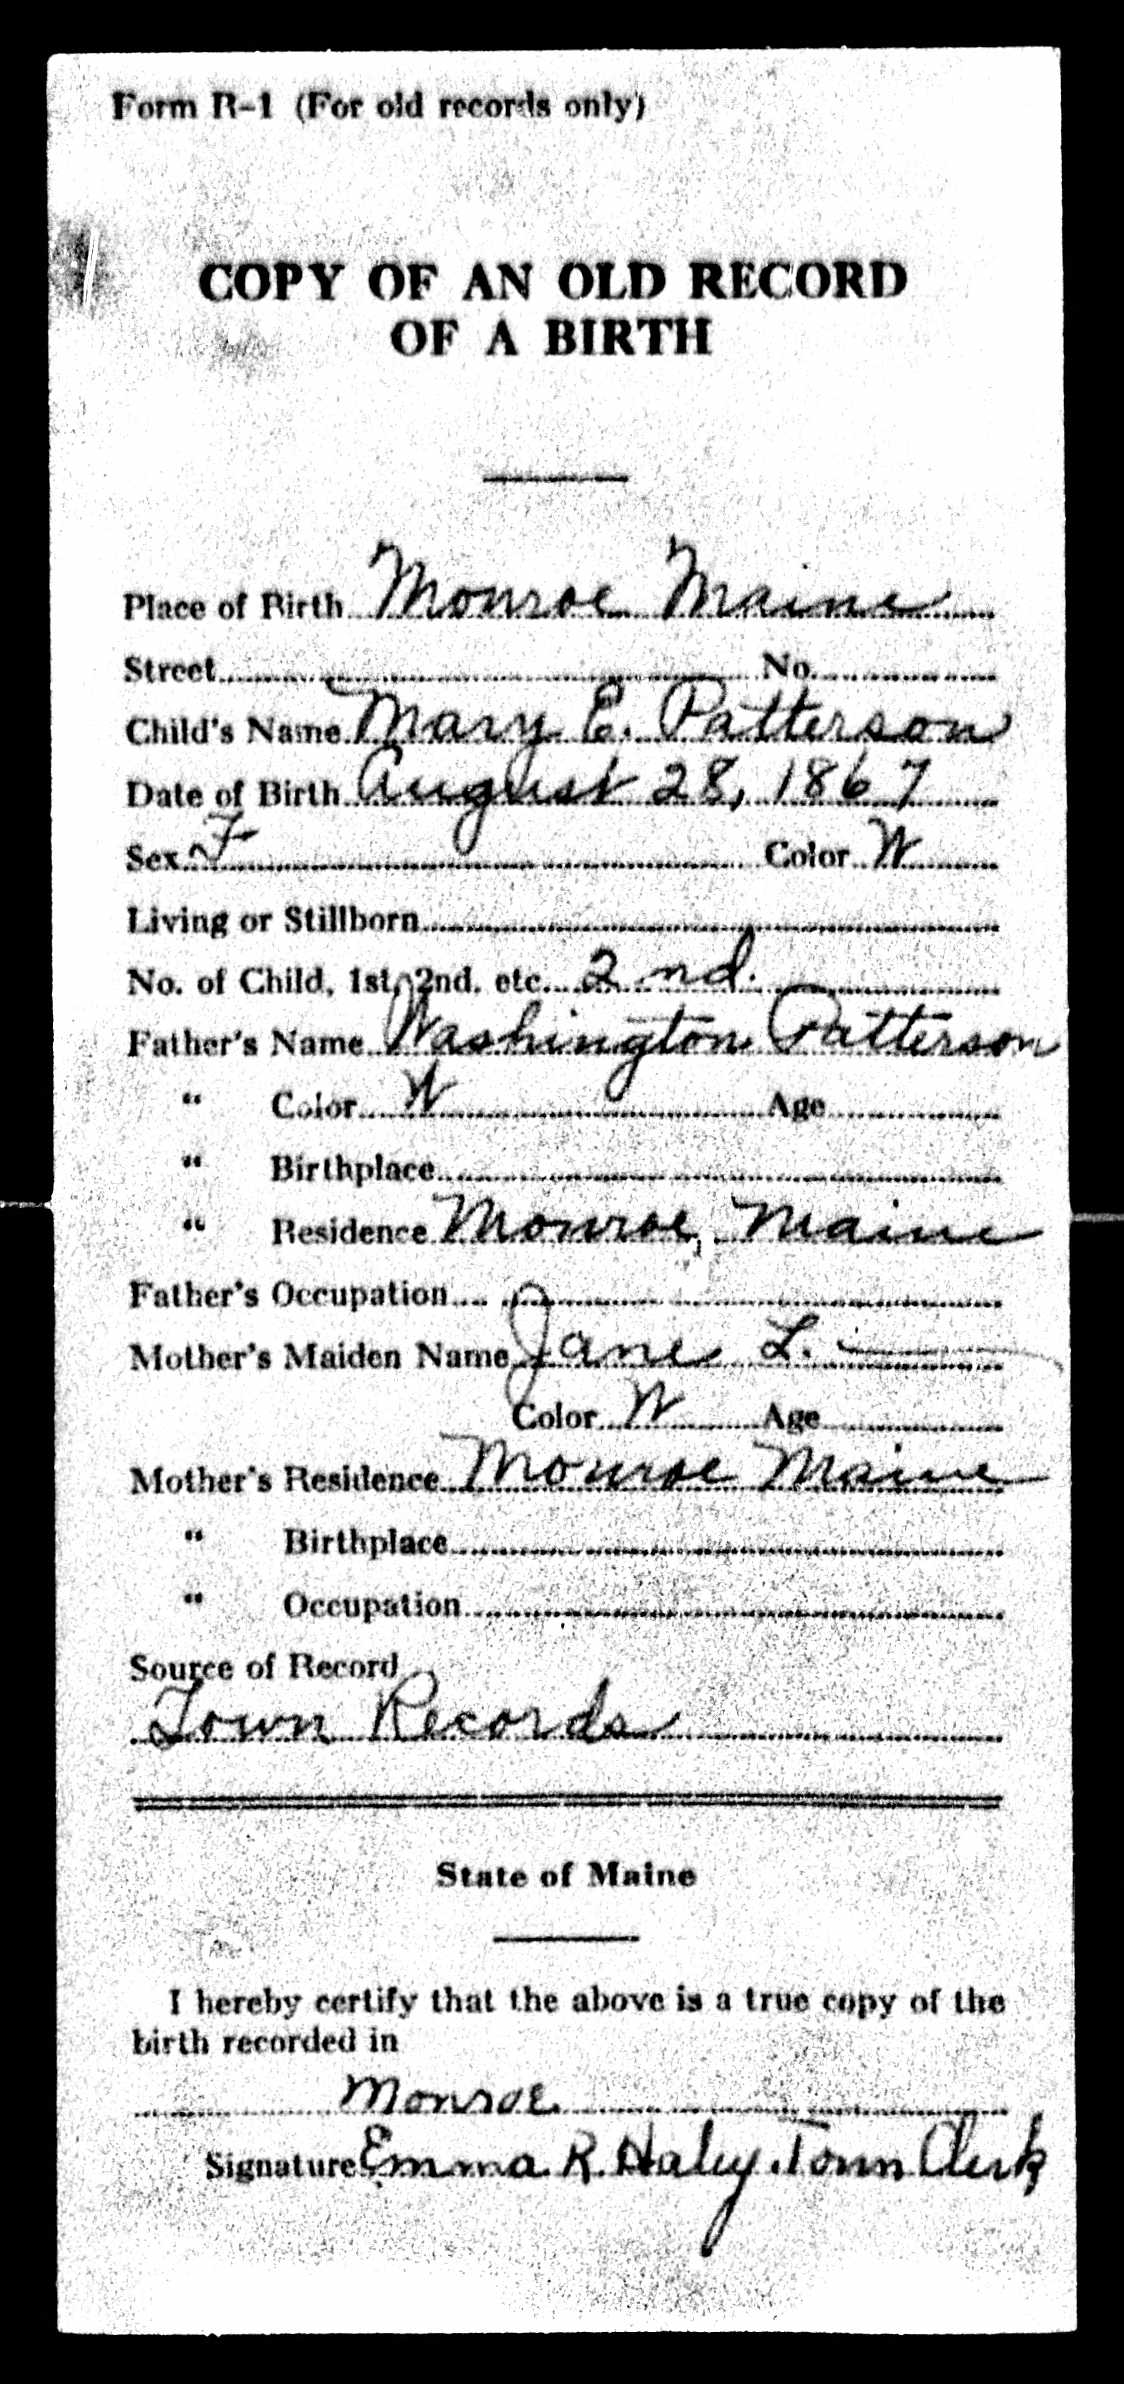 Form R-1 (For old records only)
COPY OF AN OLD RECORD
OF A BIRTH
Place of Birth Monroe Maine
Street No.
Child's Name Mary E. Patterson
Date of Birth August 28, 1867
Sex F Color W
Living or Stillborn
No. of Child, 1st, 2nd, etc. 2nd.
Father's Name Washington Patterson
" Color W Age
" Birthplace
" Residence Monroe, Maine
Father's Occupation
Mother's Maiden Name Jane L. —
Color W Age
Mother's Residence Monroe Maine
" Birthplace
" Occupation
Source of Record
Town Records
State of Maine
I hereby certify that the above is a true copy of the
birth recorded in
Monroe
Signature Emma R. Haley Town Clerk